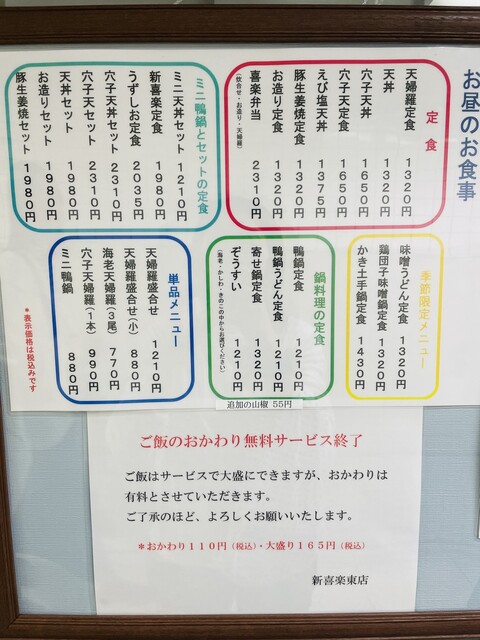 お昼のお食事
定食
天婦羅定食 1320円
天丼 1320円
穴子天丼 1650円
穴子天定食 1650円
えび塩天丼 1375円
豚生姜焼定食 1320円
お造り定食 1320円
喜楽弁当 2310円
(炊合せ・お造り・天婦羅)
ミニ鴨鍋とセットの定食
ミニ天丼セット 1210円
新喜楽定食 1980円
うずしお定食 2035円
穴子天丼セット 2310円
穴子天セット 2310円
天丼セット 1980円
お造りセット 1980円
豚生姜焼セット 1980円
季節限定メニュー
味噌うどん定食 1320円
鶏団子味噌鍋定食 1320円
かき土手鍋定食 1430円
鍋料理の定食
鴨鍋定食 1210円
鴨鍋うどん定食 1210円
寄せ鍋定食 1320円
ぞうすい 1210円
(海老・かしわ・きのこの中からお選びください)
追加の山椒 55円
単品メニュー
天婦羅盛合せ 1210円
天婦羅盛合せ(小) 880円
海老天婦羅(3尾) 770円
穴子天婦羅(1本) 990円
ミニ鴨鍋 880円
*表示価格は税込みです
ご飯のおかわり無料サービス終了
ご飯はサービスで大盛にできますが、おかわりは
有料とさせていただきます。
ご了承のほど、よろしくお願いいたします。
*おかわり110円(税込)・大盛り165円(税込)
新喜楽東店